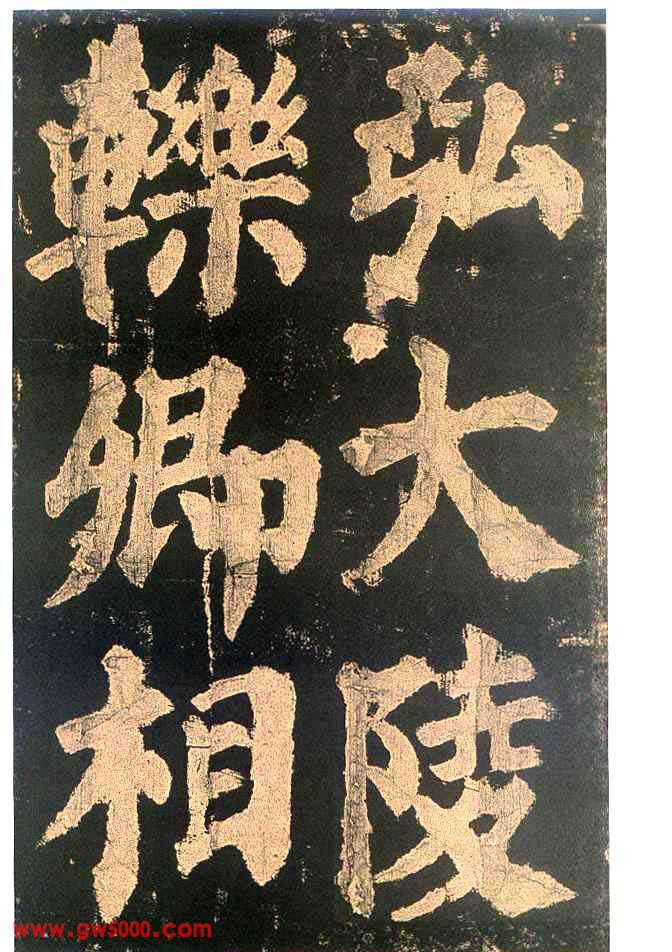 弘大陵
轢卿相
www.gw5000.com